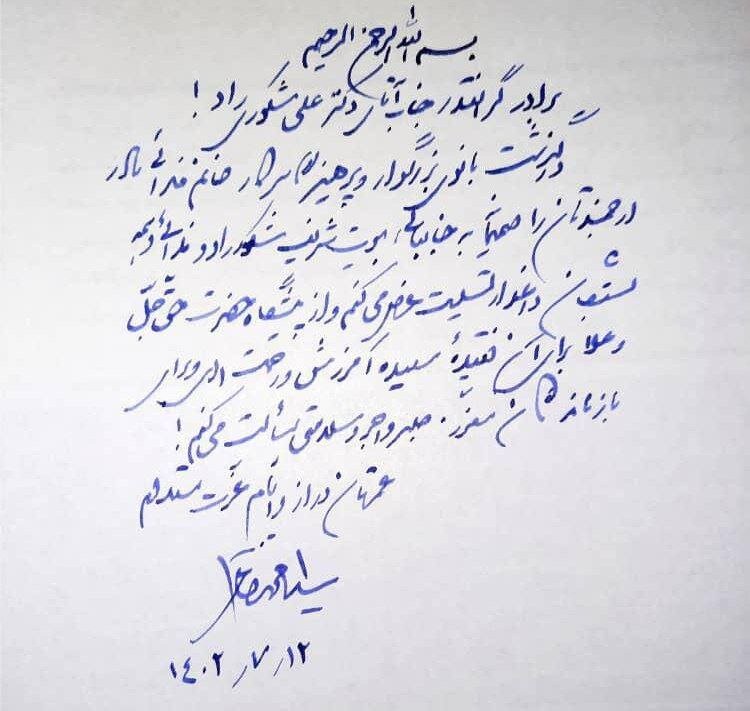 بسم الله الرحمن الرحیم
برادر گرانقدر جناب آقای دکتر علی شکوری راد!
درگذشت بانوی بزرگوار و پرهیزگار سرکار خانم فدائی مادر
ارجمندتان را صمیمانه به جنابعالی، بیت شریف شکوری‌راد و فدائی و همه
بستگان داغدار تسلیت عرض می کنم و از پیشگاه حضرت حق جلّ
و علا برای آن فقیدهٔ سعیده آمرزش و رحمت الهی و برای
بازماندگان معزّز، صبر و اجر و سلامتی مسألت می کنم!
عمرتان دراز و ایام عزّت مستدام
سید محمد خاتمی
۱۴۰۲٫۷٫۱۲